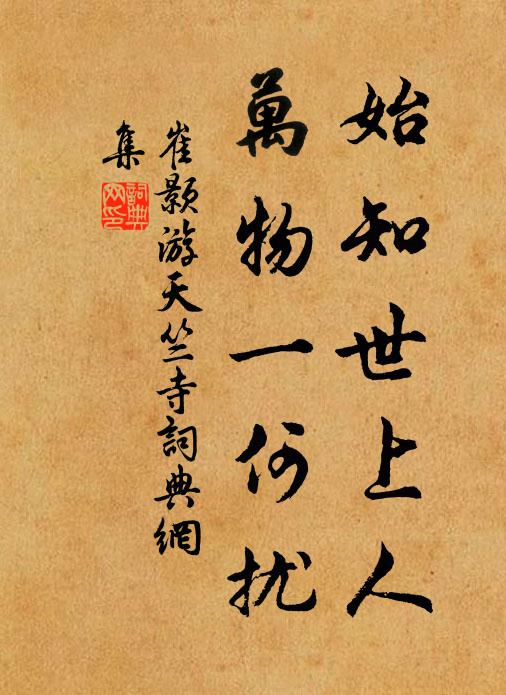 始知世上人
萬物一何扰
崔颢游天竺寺詞典網
集
詞典
网印